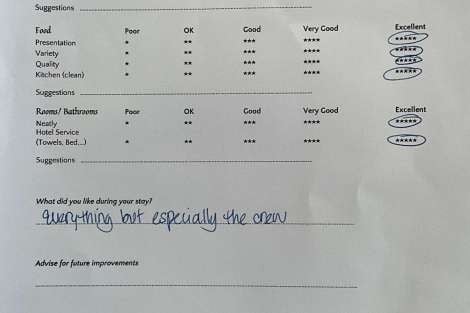 Suggestions
Food Poor OK Good Very Good Excellent
Presentation * ** *** **** *****
Variety * ** *** **** *****
Quality * ** *** **** *****
Kitchen (clean) * ** *** **** *****
Suggestions
Rooms/ Bathrooms Poor OK Good Very Good Excellent
Neatly * ** *** **** *****
Hotel Service
(Towels, Bed...) * ** *** **** *****
Suggestions
What did you like during your stay?
everything but especially the crew
Advise for future improvements